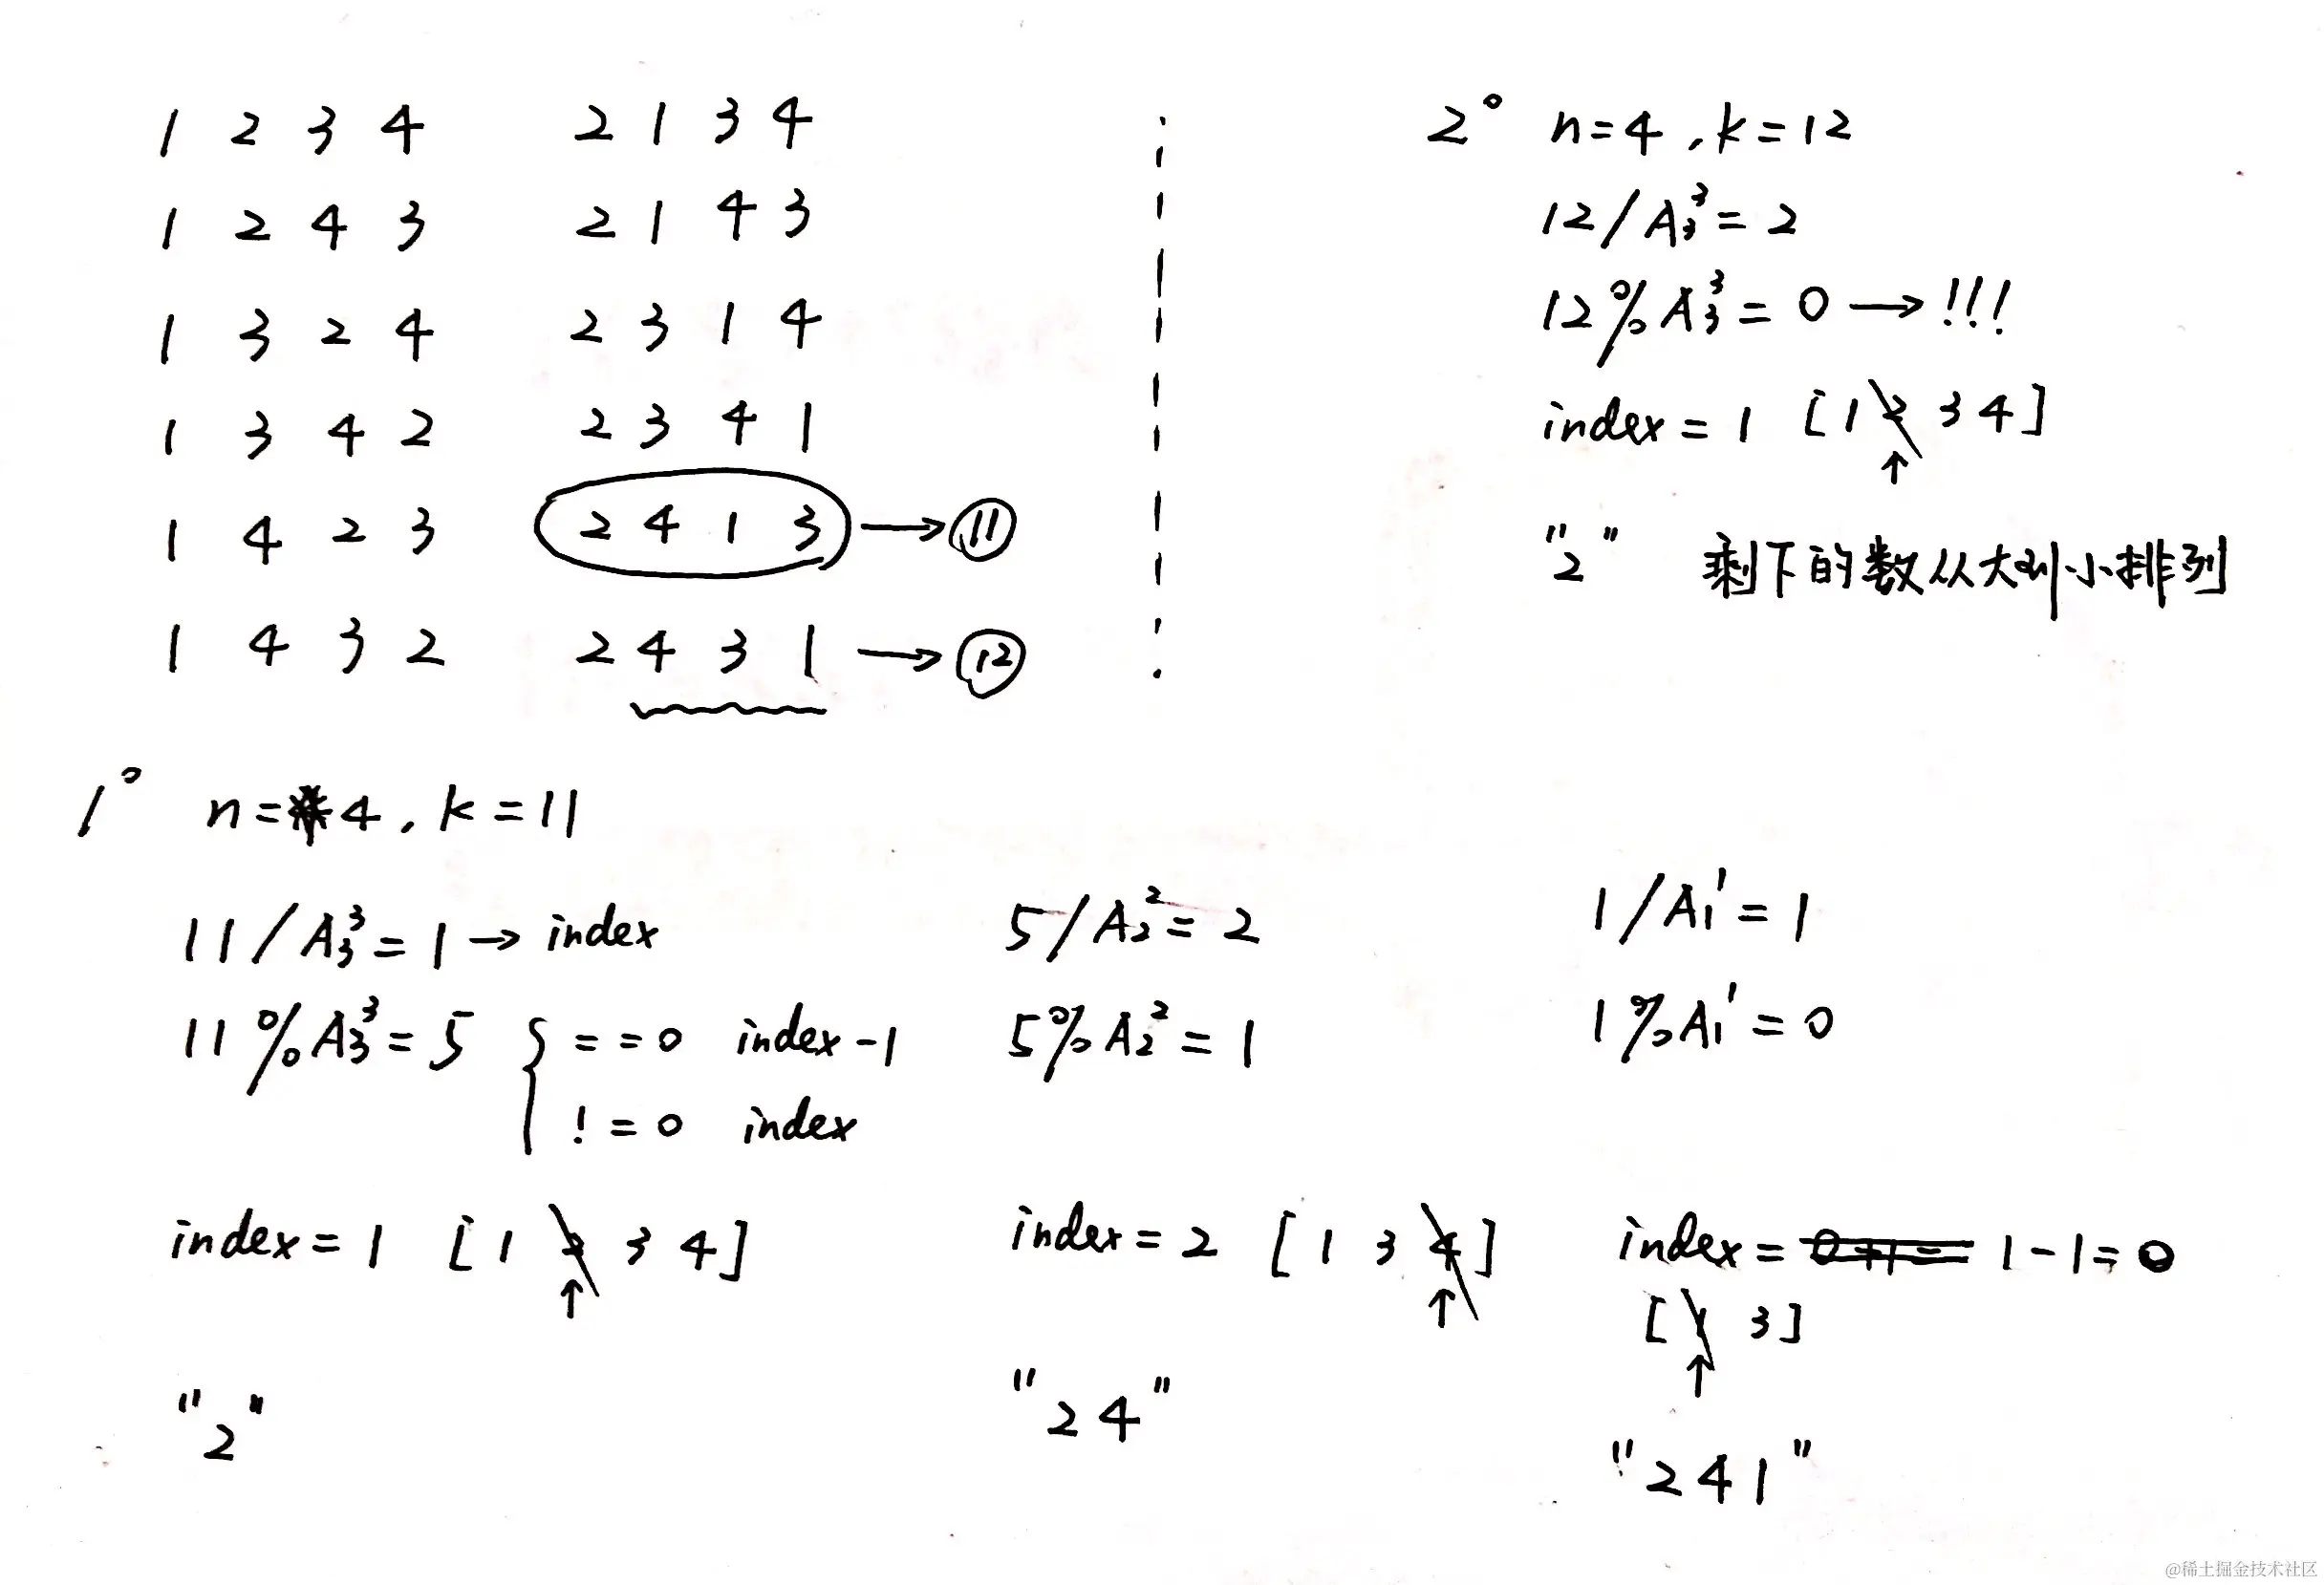 1 2 3 4   2 1 3 4
1 2 4 3   2 1 4 3
1 3 2 4   2 3 1 4
1 3 4 2   2 3 4 1
1 4 2 3   2 4 1 3 → ⑪
1 4 3 2   2 4 3 1 → ⑫
2° n=4, k=12
12/A₃³=2
12%A₃³=0 → !!!
index=1 [1 2 3 4]
↑
"2" 剩下的数从大到小排列
1° n=4, k=11
11/A₃³=1 → index
11%A₃³=5 { ==0 index-1
!=0 index
index=1 [1 2 3 4]
↑
"2"
5/A₂²=2
5%A₂²=1
index=2 [1 3 4]
↑
"24"
1/A₁¹=1
1%A₁¹=0
index= 1-1=0
[1 3]
↑
"241"
@稀土掘金技术社区